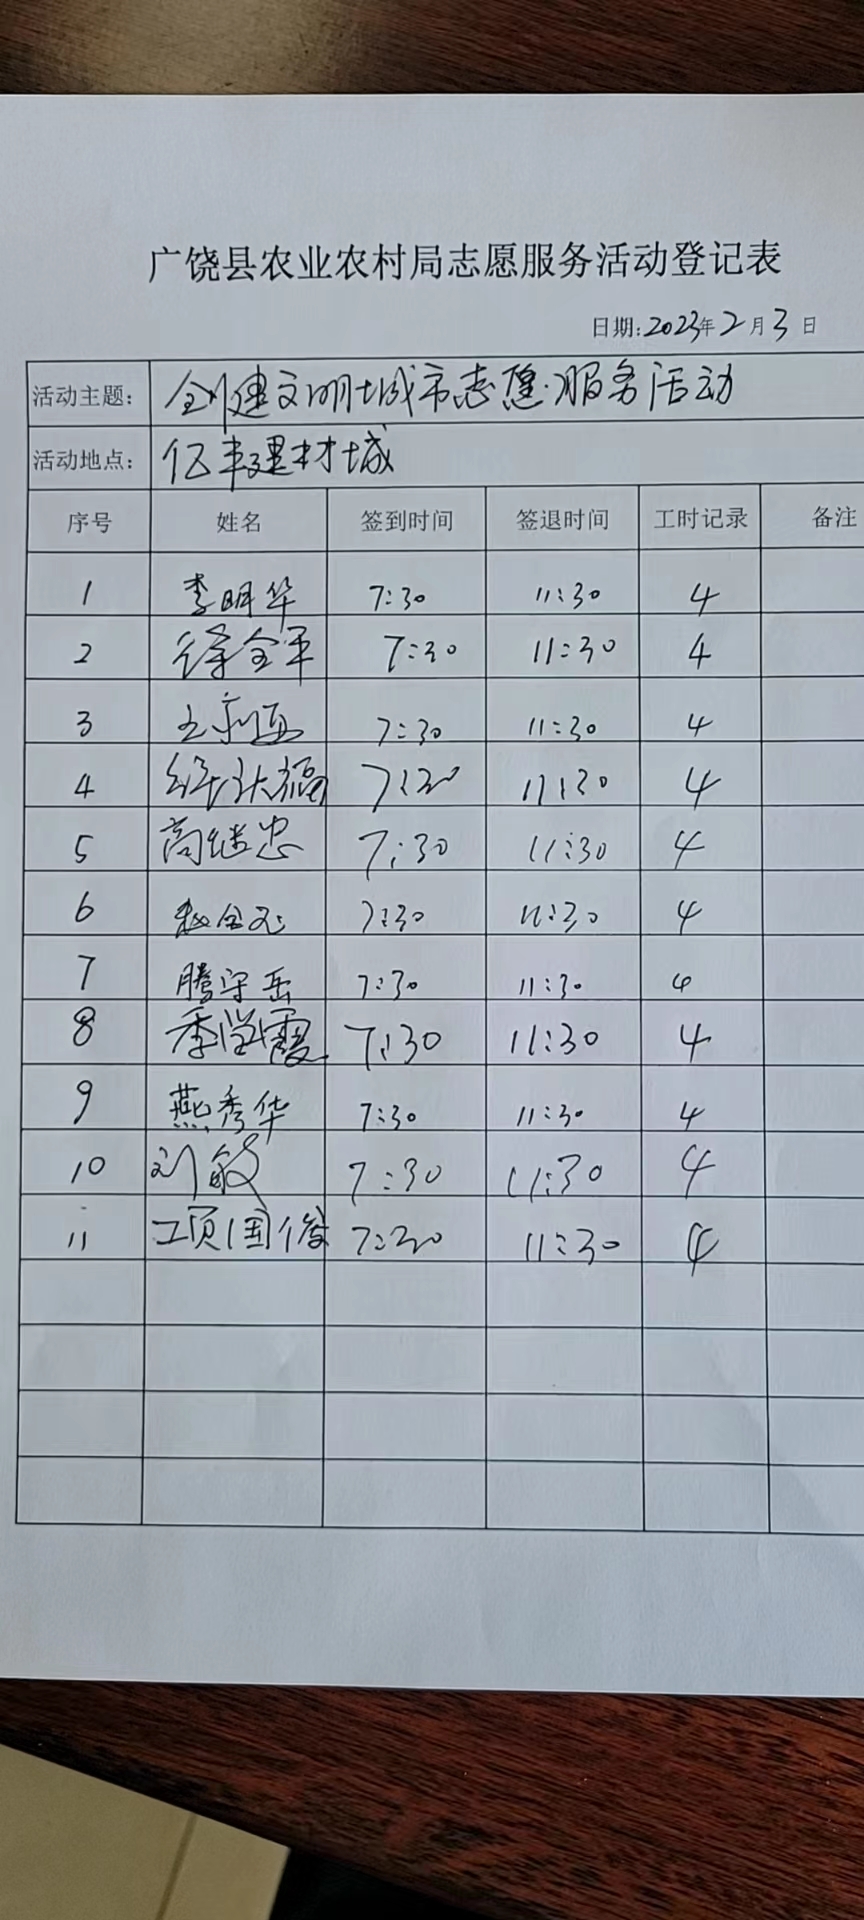 广饶县农业农村局志愿服务活动登记表
日期:2023年2月3日
活动主题: 创建文明城市志愿服务活动
活动地点: 亿丰建材城
序号 姓名 签到时间 签退时间 工时记录 备注
1 李明华 7:30 11:30 4
2 徐全军 7:30 11:30 4
3 7:30 11:30 4
4 7:30 11:30 4
5 高继忠 7:30 11:30 4
6 7:30 11:30 4
7 腾守岳 7:30 11:30 4
8 季学霞 7:30 11:30 4
9 燕秀华 7:30 11:30 4
10 刘敏 7:30 11:30 4
11 项国俊 7:30 11:30 4